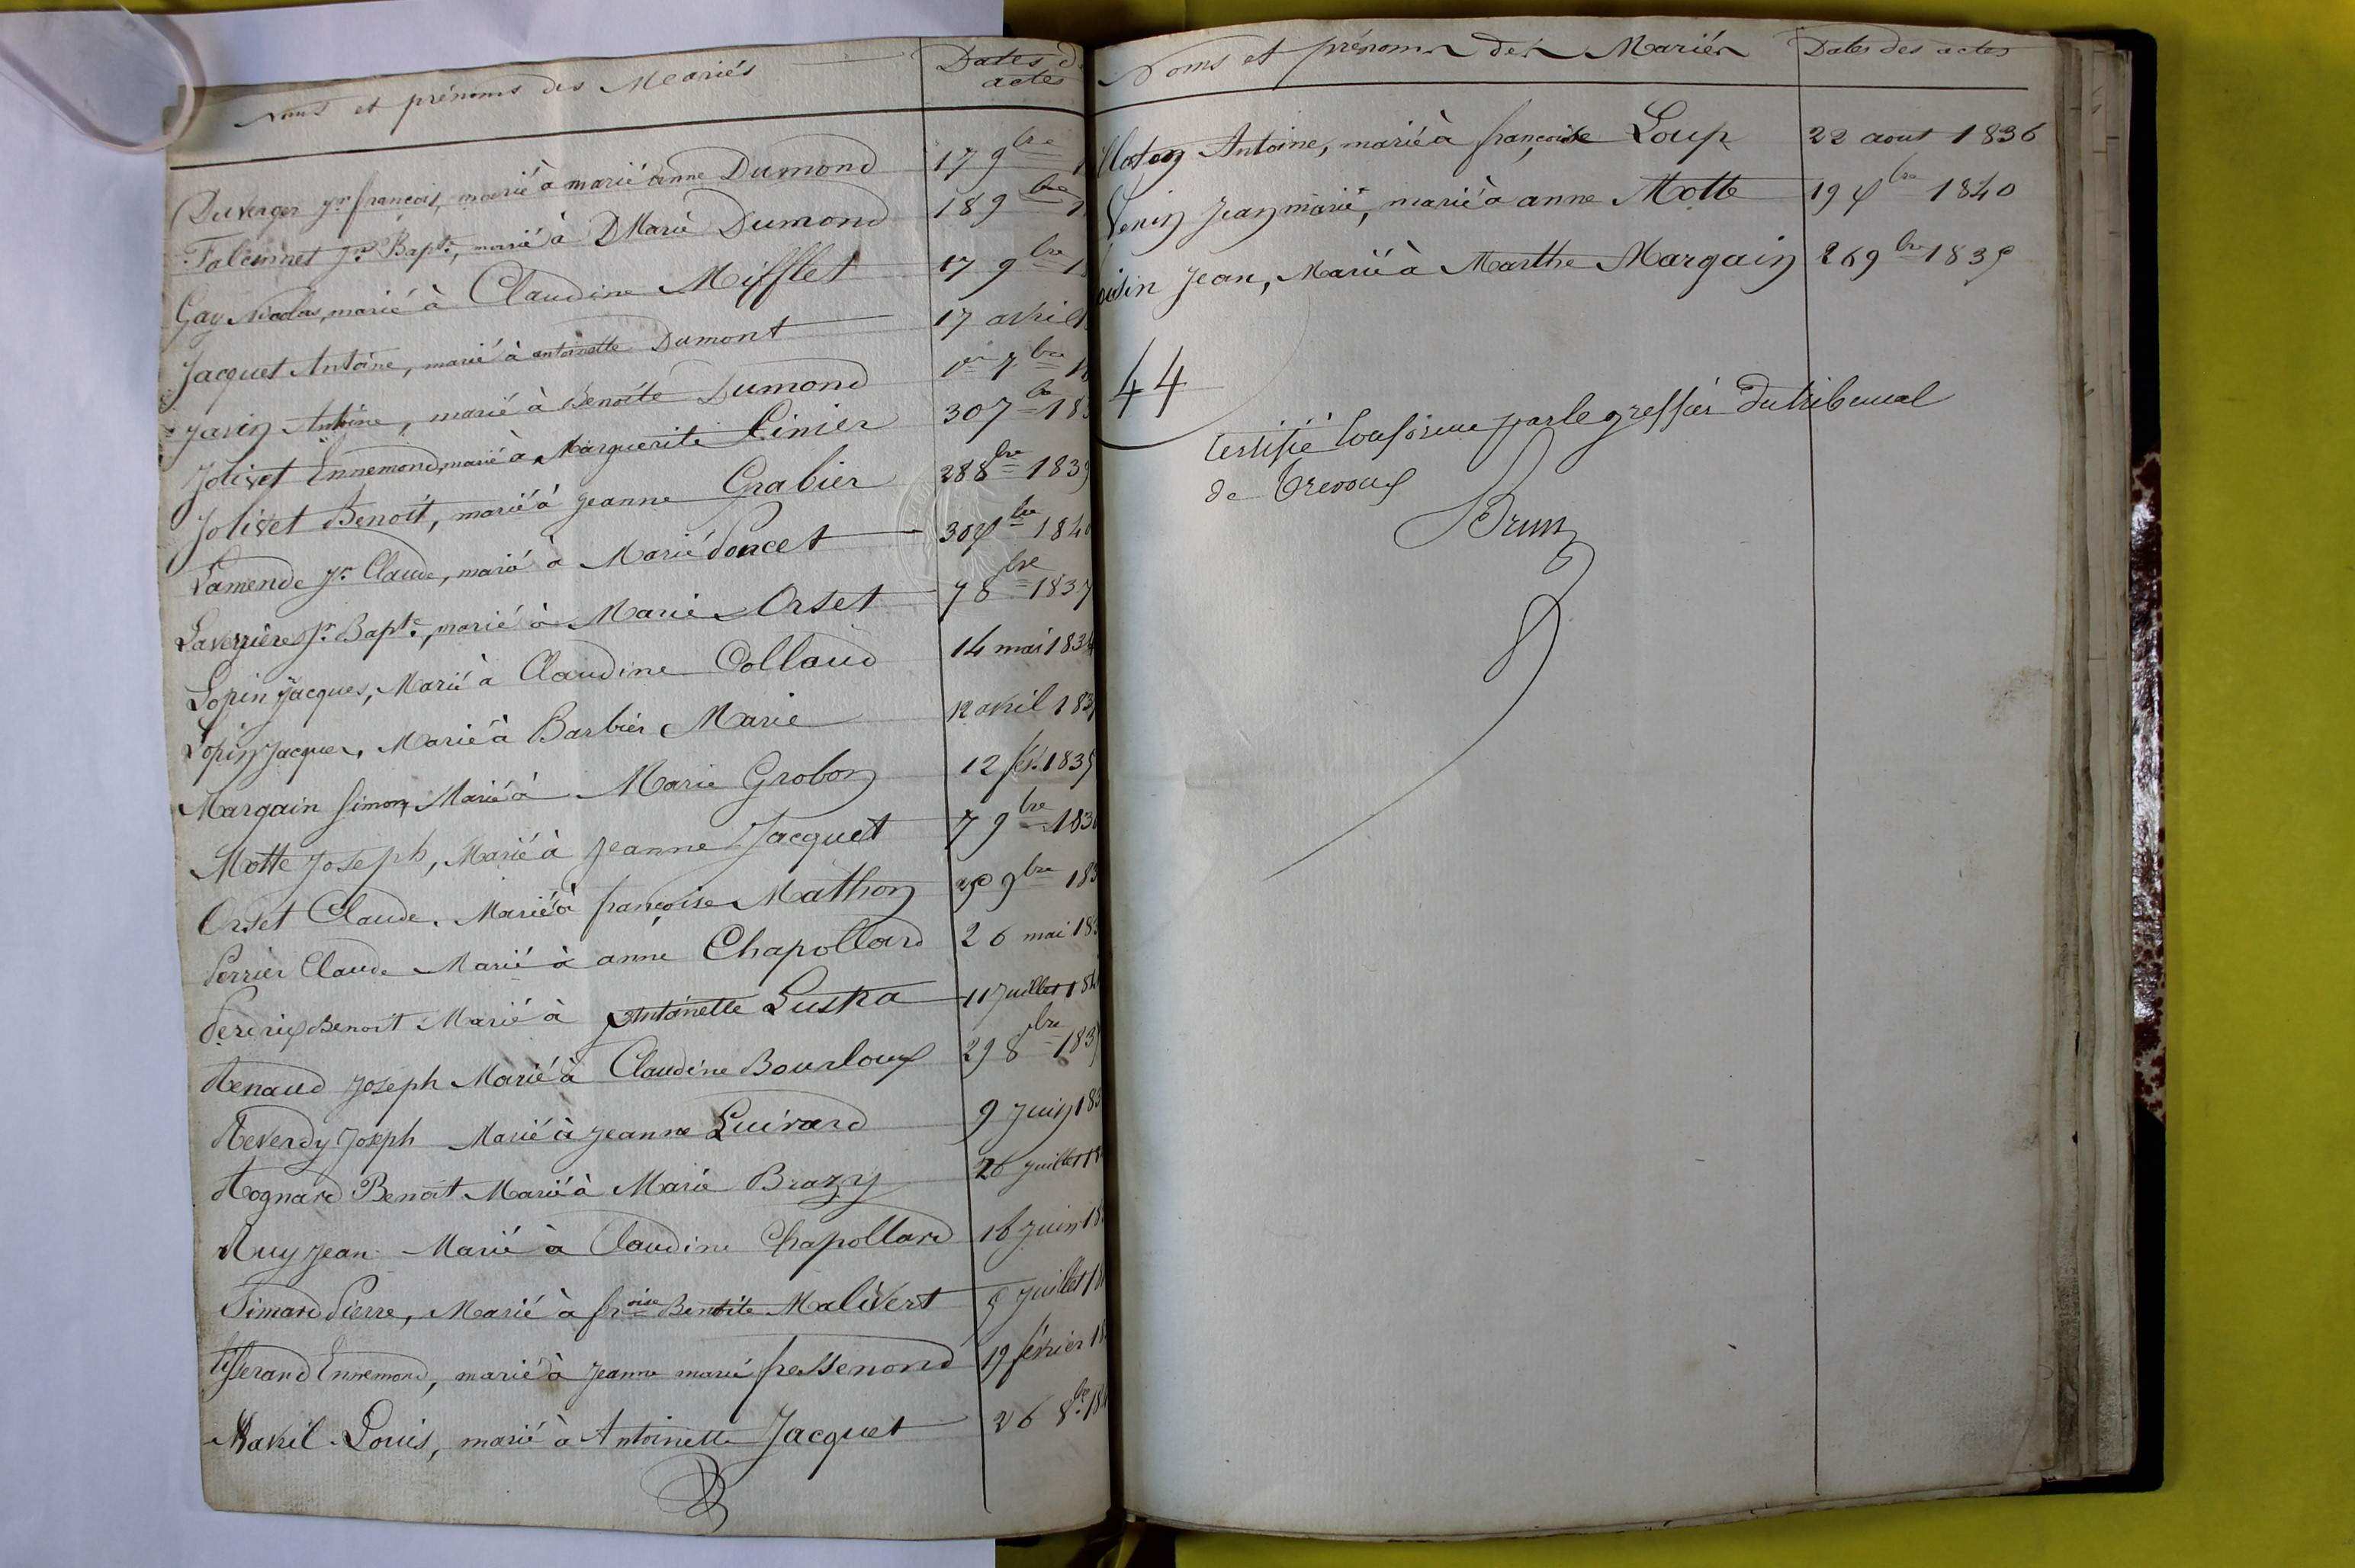 Noms et prénoms des Mariés Dates d
actes
Duverger Jn françois, marié à marie anne Dumond 17 9bre 1
Falconnet Jn Bapte, marié à D Marie Dumond 18 9bre 1
Gay Nicolas, marié à Claudine Mifflet 17 9bre 1
Jacquet Antoine, marié à antoinette Dumont 17 avril
Javin Antoine, marié à Benoite Dumond 1er 7bre 18
Jolivet Ennemond, marié à Marguerite Linier 30 7bre 183
Jolivet Benoit, marié à jeanne Grabier 28 8bre 1839
Lamende Jn Claude, marié à Marie Poncet 30 Xbre 1840
Laverrière Jn Bapte, marié à Marie Orset 7 8bre 1837
Lopin Jacques, Marié à Claudine Collaud 14 mai 1834
Lopin Jacques, Marié à Barbier Marie 12 avril 183
Margain Simon, Marié à Marie Grobon 12 fév. 1835
Motte Joseph, Marié à jeanne Jacquet 7 9bre 183
Orset Claude. Marié à françoise Mathon 9bre 183
Perrier Claude Marié à anne Chapollard 26 mai 183
Benoit Marié à Antoinette Luska 11 Juillet 184
Renaud Joseph Marié à Claudine Bourloux 29 8bre 183
Reverdy Joseph Marié à jeanne Guivard 9 Juin 183
Rognard Benoit Marié à Marie Brazy 26 Juillet 18
Ruy Jean Marié à Claudine Chapollard 16 Juin 18
Simard Pierre, Marié à froise Benoite Malivert 5 Juillet 18
tisserand Ennemond, marié à Jeanne marie fressenond 19 février 18
Mavril Louis, marié à Antoinette Jacquet 26 8bre 18
Noms et prénoms des Mariés Dates des actes
Antoine, marié à françoise Loup 22 aout 1836
Venin Jean marie, marié à anne Motte 19 Xbre 1840
oisin Jean, Marié à Marthe Margain 26 9bre 1835
44
Certifié Conforme par le greffier du tribunal
de Trevoux
Brun